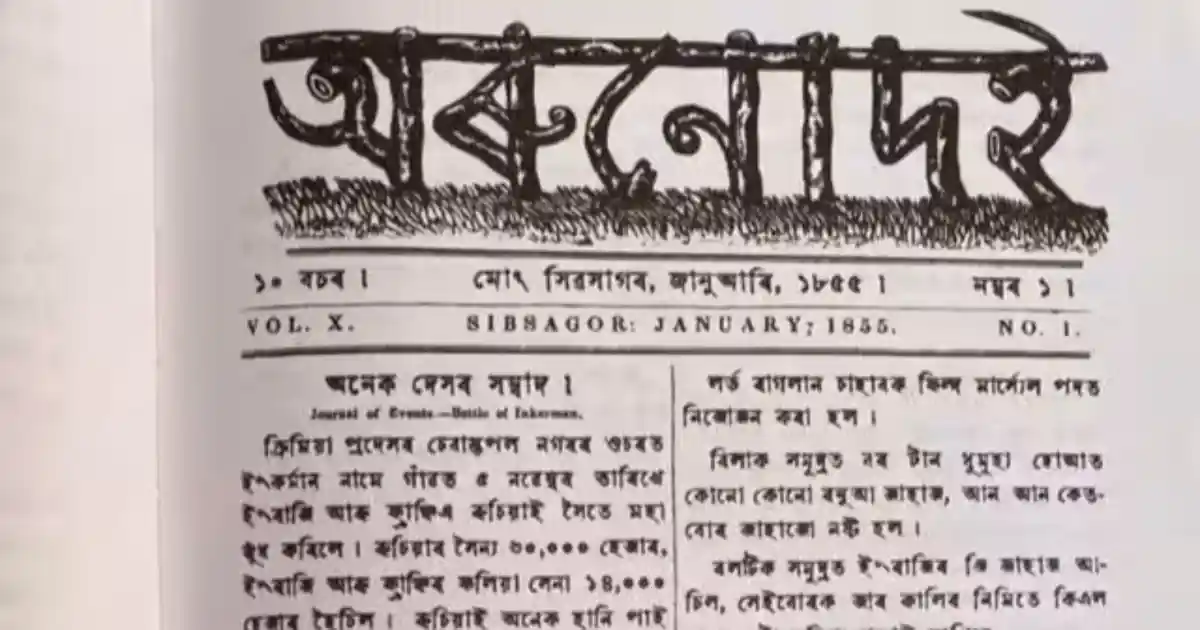 অৰুনোদই
১০ বচৰ ।
মোং সিবসাগৰ, জানুআৰি, ১৮৫৫ ।
নম্বৰ ১ ।
VOL. X.
SIBSAGOR: JANUARY, 1855.
NO. 1.
অনেক দেসৰ সম্বাদ ।
Journal of Events.—Battle of Inkerman.
ক্ৰিমিয়া প্ৰদেসৰ চেবাস্তুপল নগৰৰ ওচৰত
ইংকৰ্মান নামে গাঁৱত ৫ নবেম্বৰ তাৰিখে
ইংৰাজি আৰু ফ্ৰান্সিএ ৰুচিয়াই সৈতে মহা
যুধ কৰিলে । ৰুচিয়াৰ সৈন্য ৬০,০০০ হেজাৰ,
ইংৰাজি আৰু ফ্ৰান্সিৰ কলিয়া সেনা ১৪,০০০
হেজাৰ হৈছিল । ৰুচিয়াই অনেক হানি পাই
লৰ্ড ৰাগলান চাহাবক ফিল্দ মাৰ্সেল পদত
নিজোজন কৰা হল ।
বিলাক সমূদ্ৰত বৰ টান ধুমুহা হোআত
কোনো কোনো ৰনুআ জাহাজ, আন আন কেত-
বোৰ জাহাজো নষ্ট হল ।
বলটিক সমূদ্ৰত ইংৰাজিৰ জি জাহাজ আ-
চিল, সেইবোৰক জাৰ কালিৰ নিমিতে কিএল